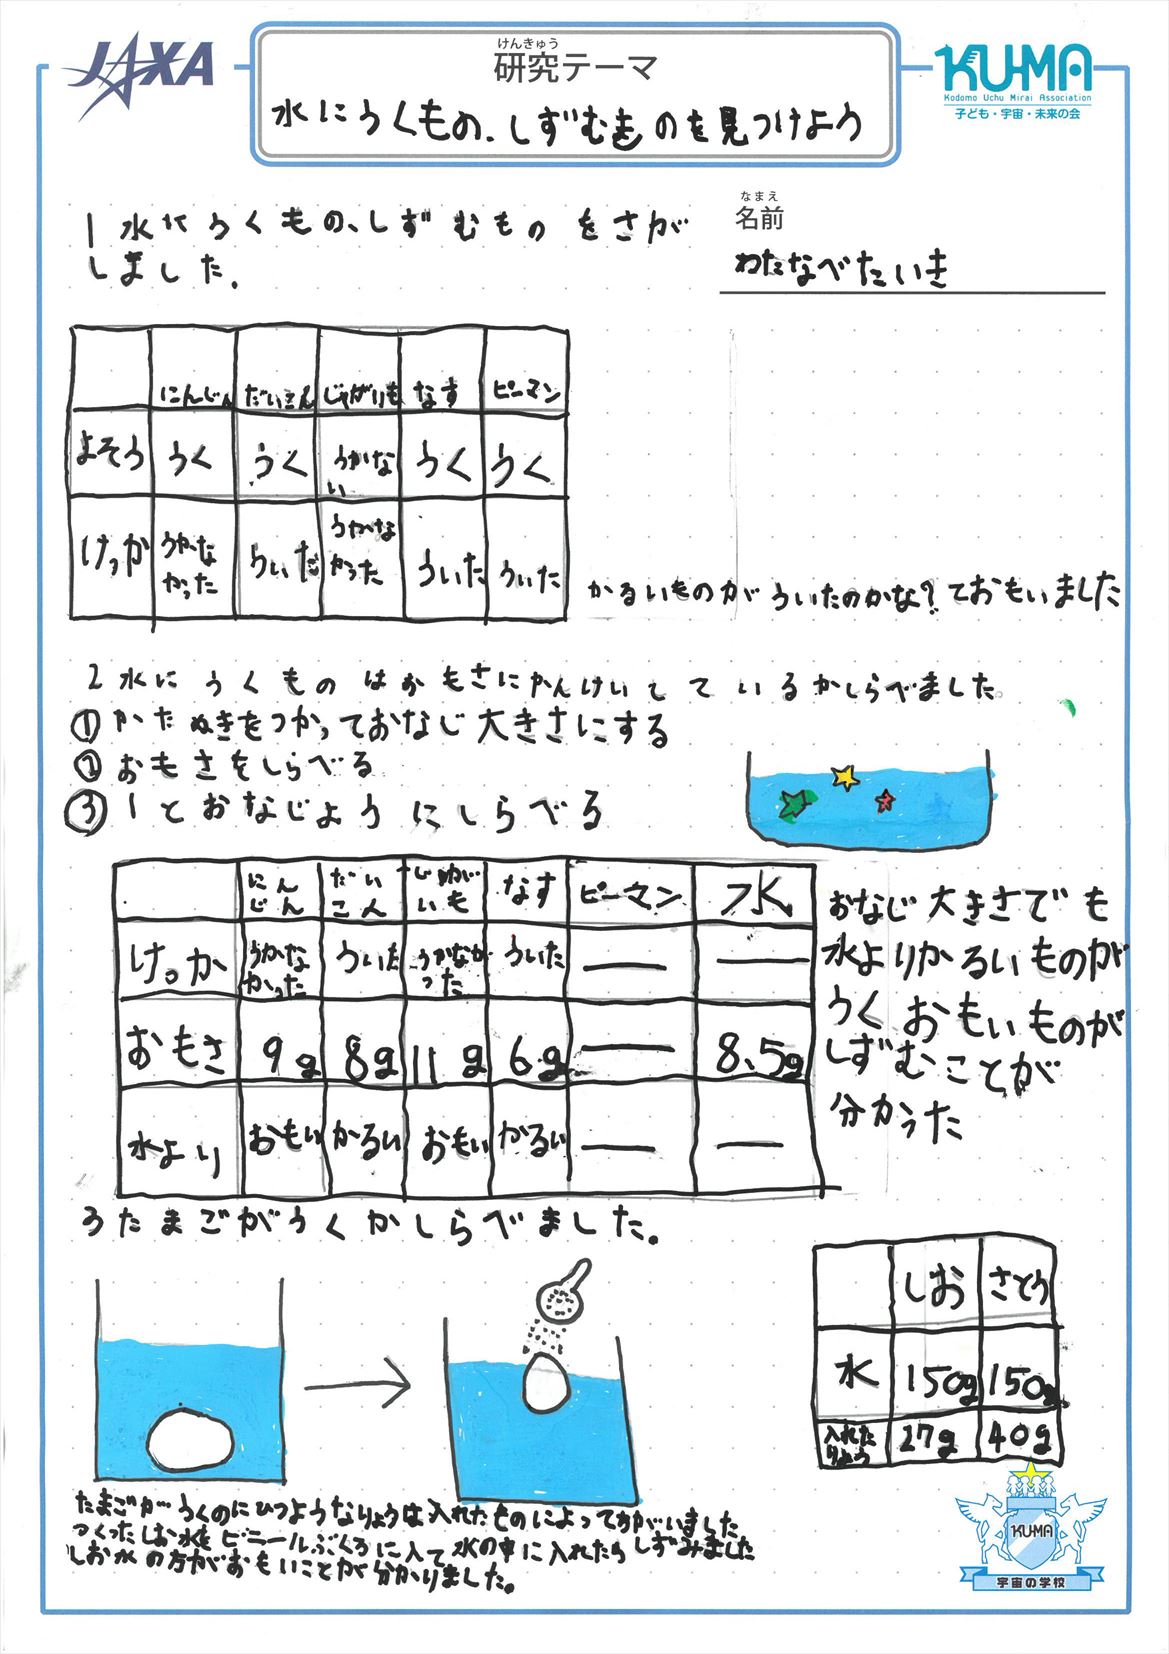 JAXA
けんきゅう
研究テーマ
水にうくもの、しずむものを見つけよう
KUMA
Kodomo Uchu Mirai Association
子ども・宇宙・未来の会
なまえ
名前
わたなべたいき
1 水にうくもの、しずむものをさが
しました。
にんじん だいこん じゃがいも なす ピーマン
よそう うく うく うかない うく うく
けっか うかなかった ういた うかなかった ういた ういた
かるいものがういたのかな?ておもいました
2 水にうくものはおもさにかんけいしているかしらべました。
① かたぬきをつかっておなじ大きさにする
② おもさをしらべる
③ 1とおなじようにしらべる
にんじん だいこん じゃがいも なす ピーマン 水
けっか うかなかった ういた うかなかった ういた ー ー
おもさ 9g 8g 11g 6g ー 8.5g
水より おもい かるい おもい かるい ー ー
おなじ大きさでも
水よりかるいものが
うくおもいものが
しずむことが
分かった
3 たまごがうくかしらべました。
しお さとう
水 150g 150g
入れたりょう 27g 40g
たまごがうくのにひつようなりょうは入れたものによってちがいました
つくったしお水をビニールぶくろに入て水の中に入れたらしずみました
しお水の方がおもいことが分かりました。
KUMA
宇宙の学校